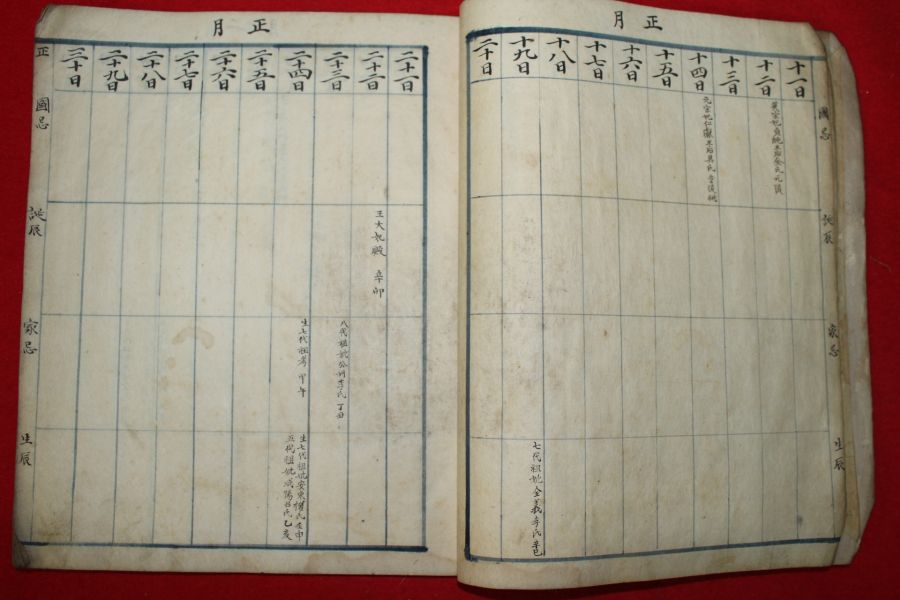 正月
國忌
誕辰
家忌
生辰
十一日
十二日
英宗妃貞純王后金氏元陵
十三日
十四日
十五日
十六日
十七日
十八日
十九日
七代祖妣全義李氏辛巳
二十日
正月
二十一日
二十二日
王大妃殿 辛卯
二十三日
八代祖妣公州李氏 丁丑
二十四日
生七代祖考 甲午
生七代祖妣安東權氏壬申
五代祖妣咸陽呂氏乙亥
二十五日
二十六日
二十七日
二十八日
二十九日
三十日
正
國忌
誕辰
家忌
生辰